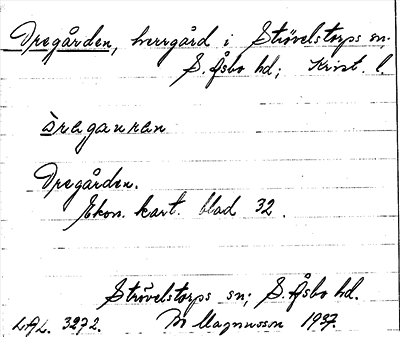 Dregården, herrgård i Strövelstorps sn;
S. Åsbo hd; Krist. l.
dragauran
Dregården.
Ekon. kart. blad 32.
Strövelstorps sn; S. Åsbo hd.
L.A.L. 3272. Magnusson 1937.